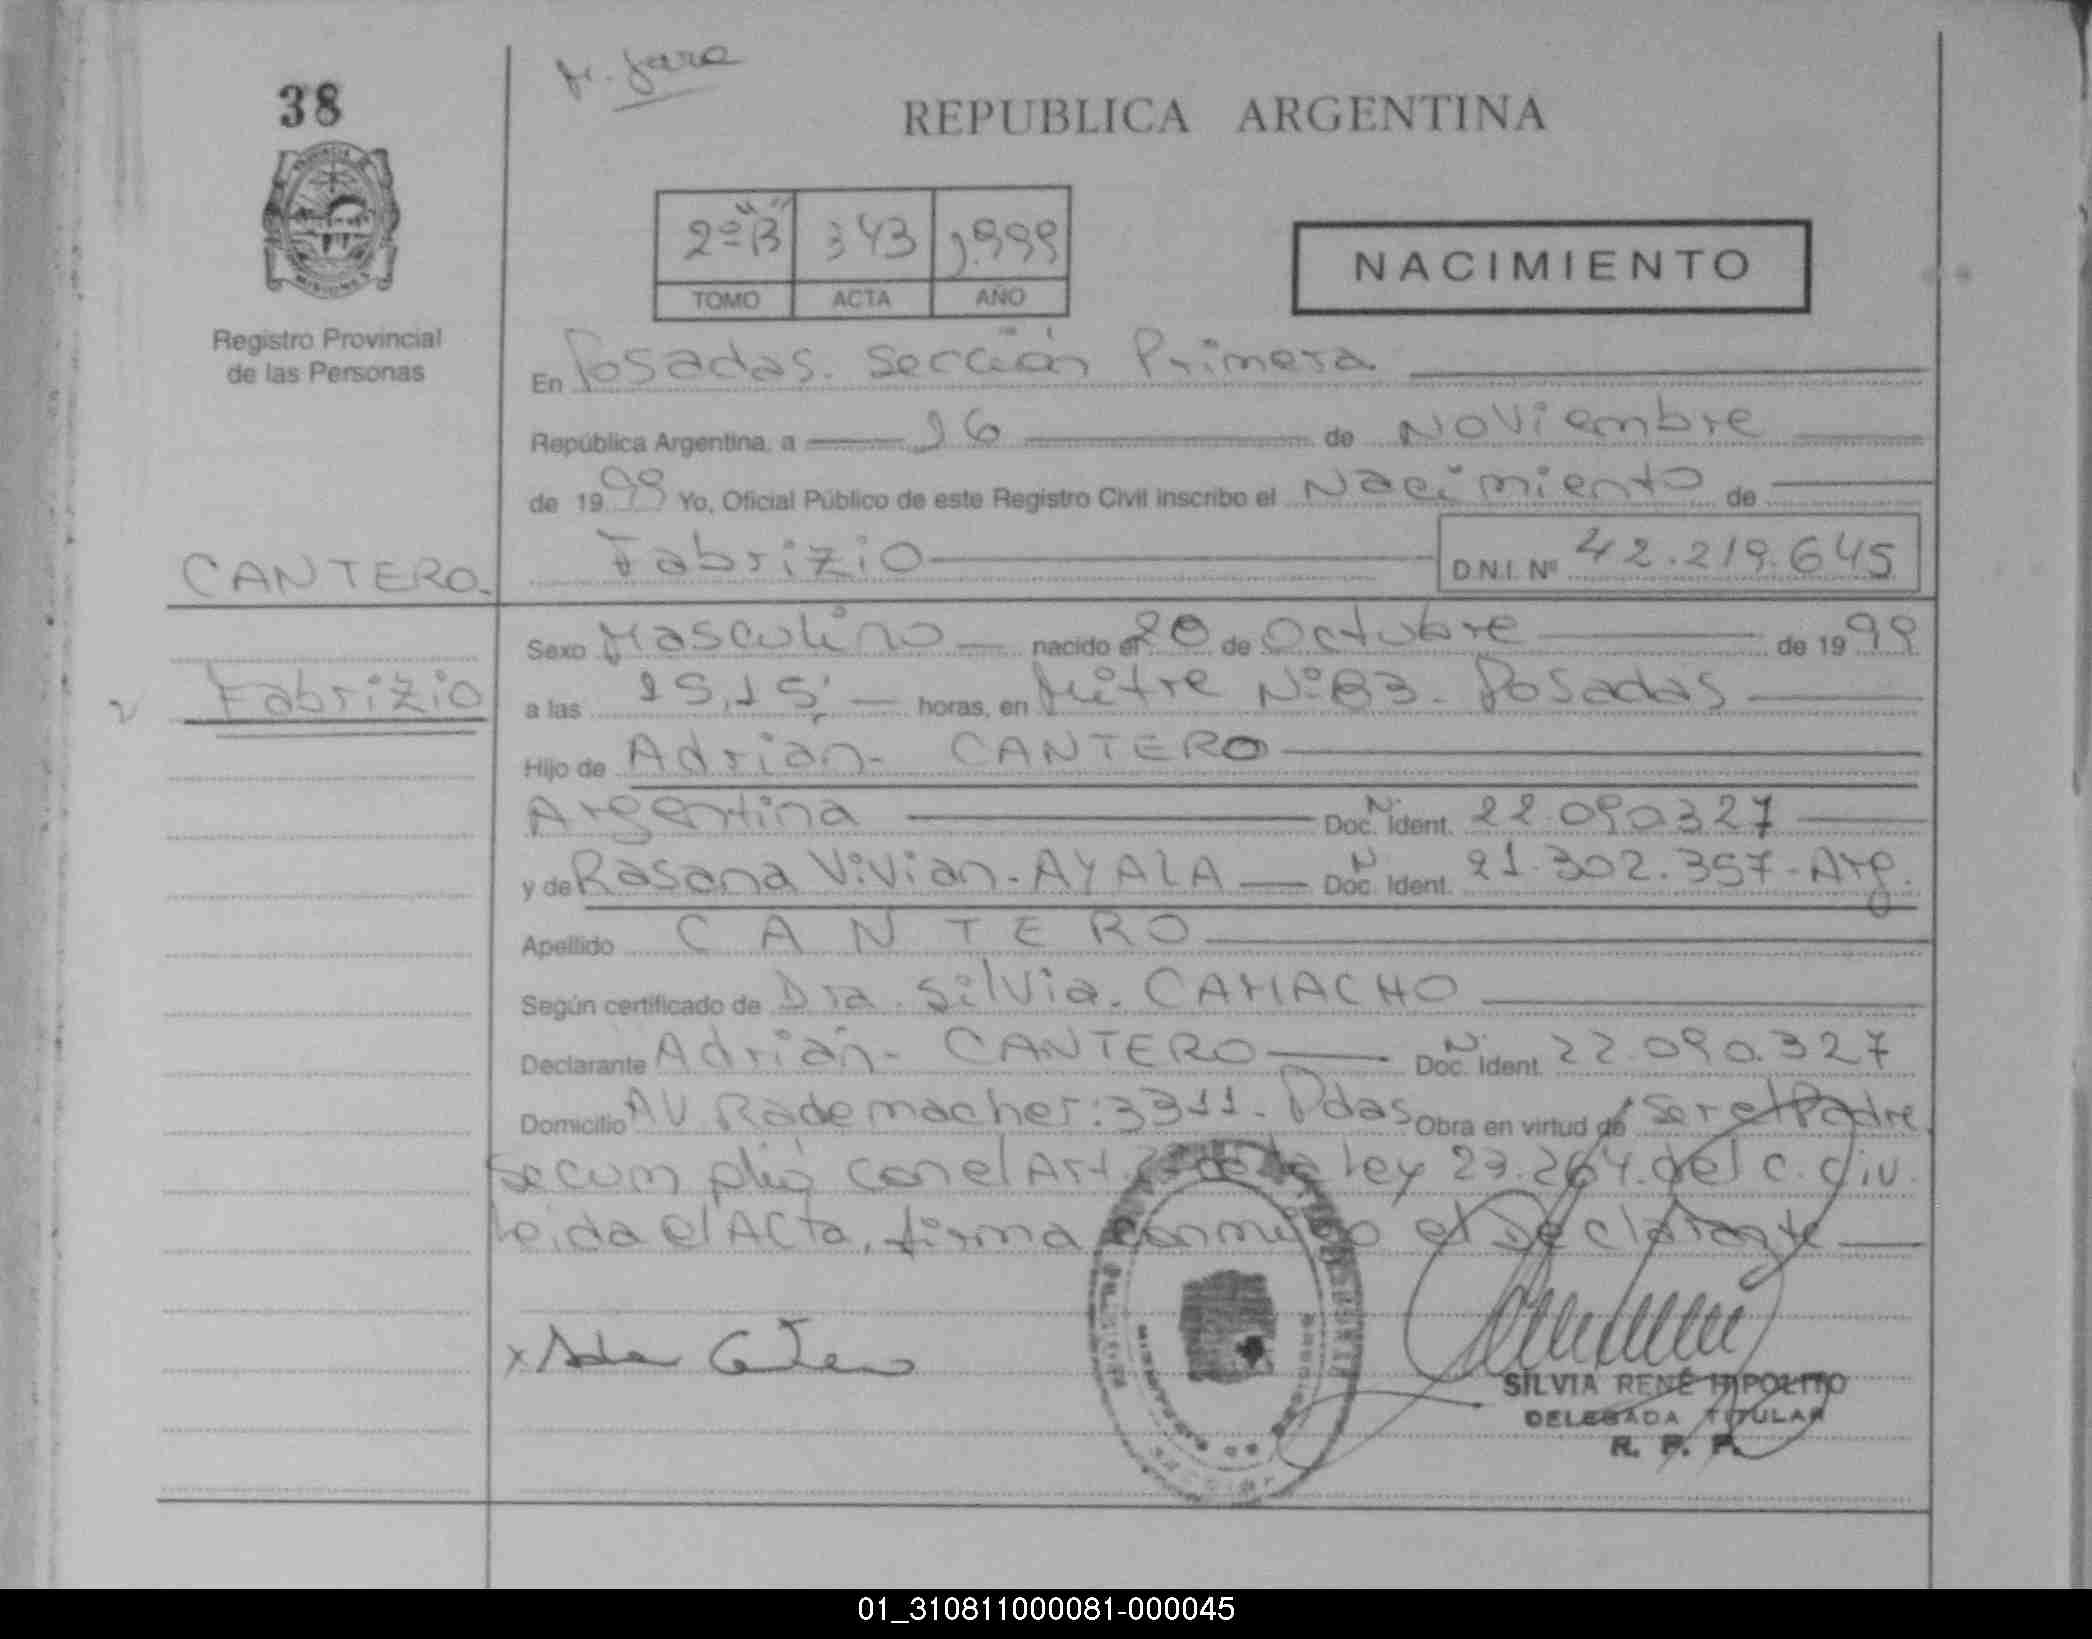 38
M. Jara
REPUBLICA ARGENTINA
2º "B" 343 1.999
TOMO ACTA AÑO
NACIMIENTO
Registro Provincial
de las Personas
En Posadas. Sección Primera
República Argentina, a 16 de Noviembre
de 1999 Yo, Oficial Público de este Registro Civil inscribo el Nacimiento de
CANTERO.
Fabrizio D.N.I. Nº 42.219.645
Fabrizio
Sexo Masculino nacido el 20 de Octubre de 1999
a las 15,15 horas, en Mitre Nº 83. Posadas
Hijo de Adrián- CANTERO
Argentina Doc. Ident. 22.090.327
y de Rosana Vivian- AYALA Doc. Ident. 21.302.357-Arg.
Apellido CANTERO
Según certificado de Dra. Silvia. CAMACHO
Declarante Adrián- CANTERO Doc. Ident. 22.090.327
Domicilio AV. Rademacher: 3311. Pdas Obra en virtud de Ser el Padre
se cumplió con el Art. de la Ley 23.264. del C. Civ.
leida el Acta, firma conmigo el Declarante
SILVIA RENÉ HIPOLITO
DELEGADA TITULAR
R. P. P.
01_310811000081-000045